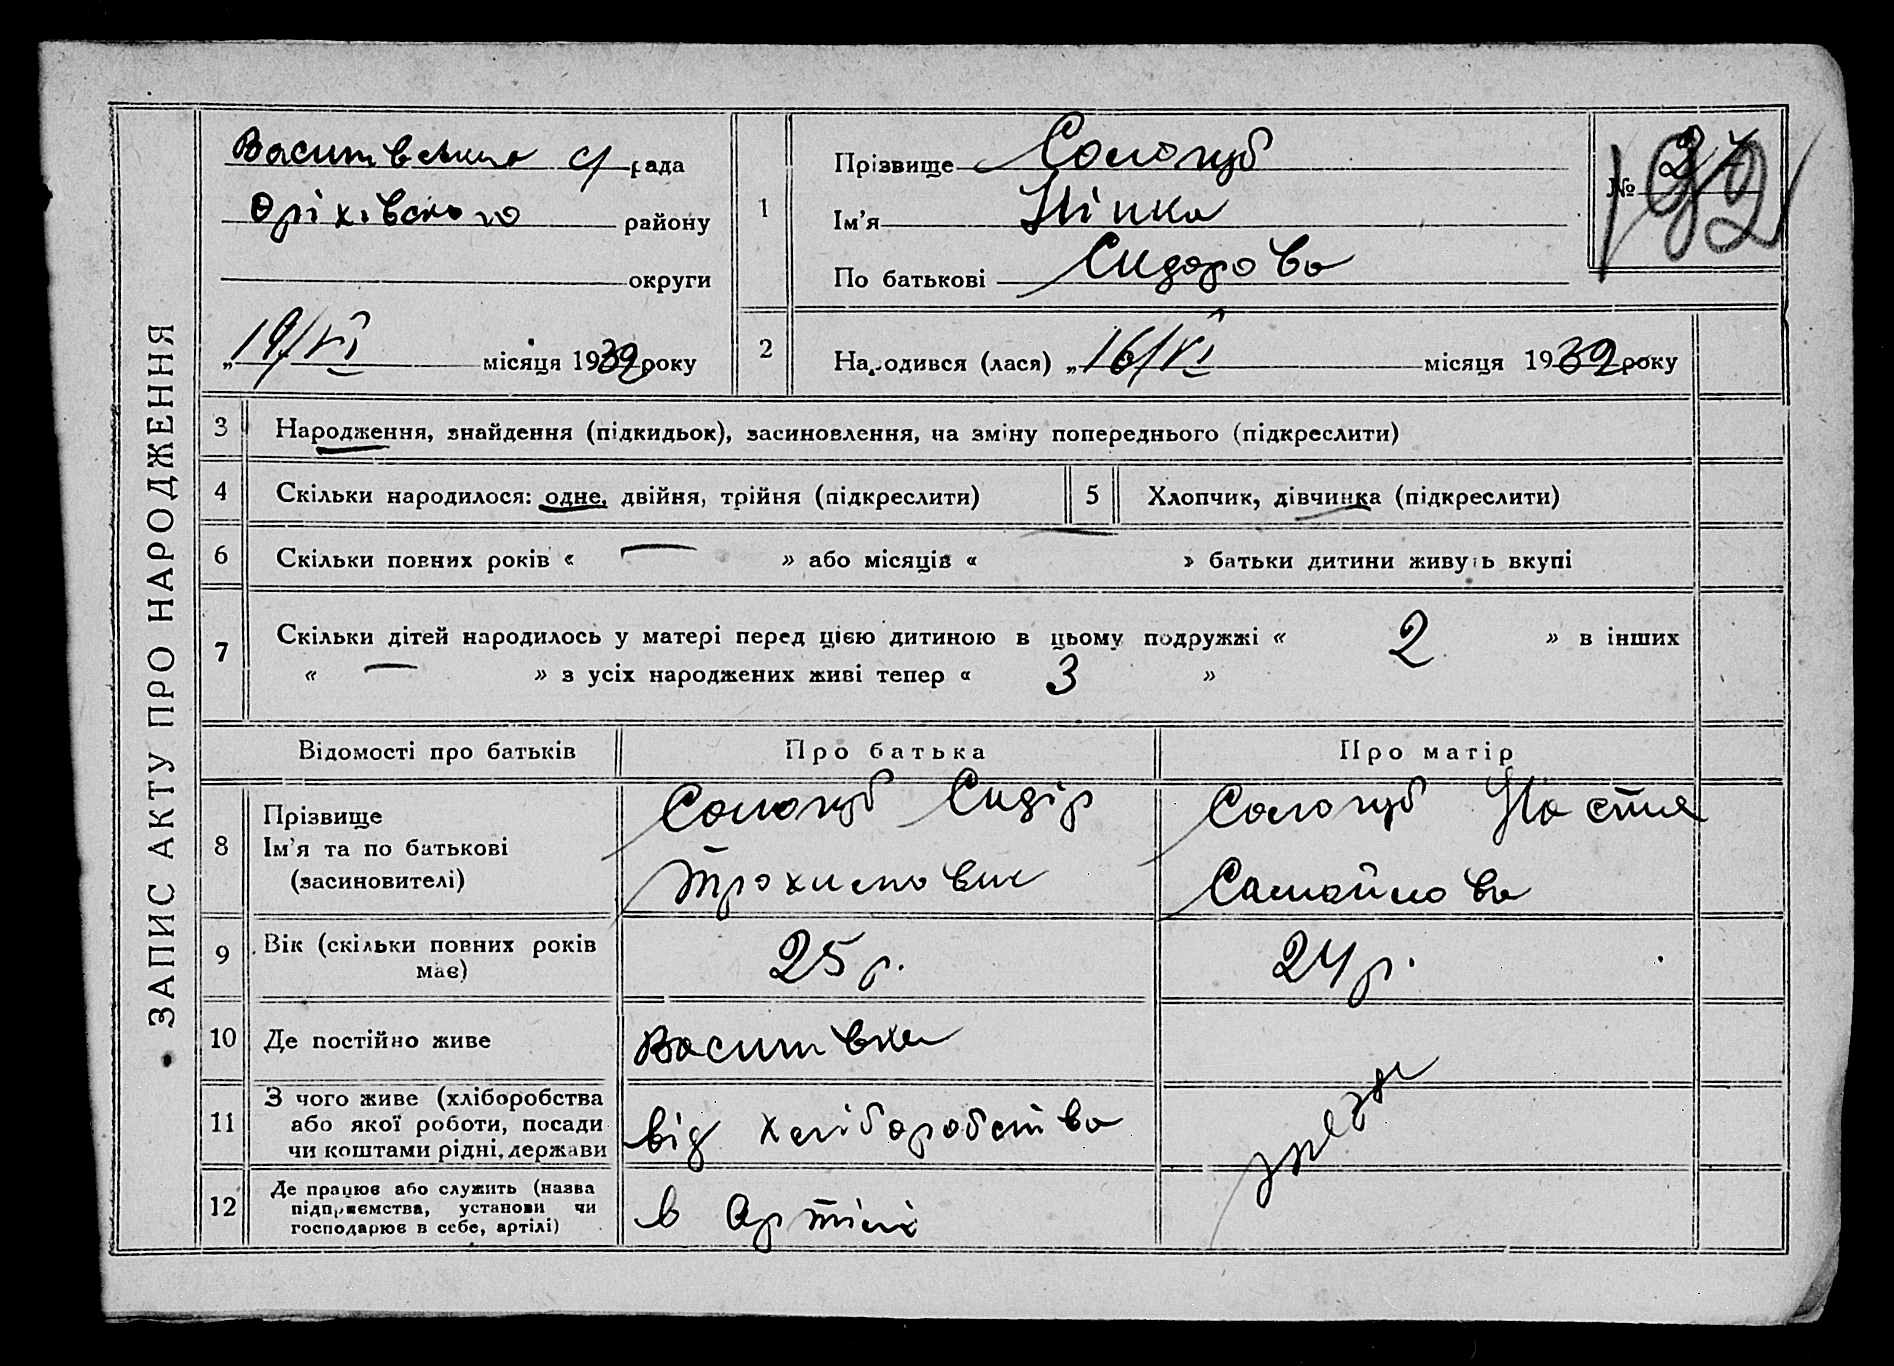 ЗАПИС АКТУ ПРО НАРОДЖЕННЯ
Василівська с/рада
Оріхівського району
округи
„19/VI місяця 1932 року
1
Прізвище Сологуб
Ім'я Нінка
По батькові Сидорова
№ 37
192
2
Народився (лася) „16/VI місяця 1932 року
3 Народження, знайдення (підкидьок), засиновлення, на зміну попереднього (підкреслити)
4 Скільки народилося: одне, двійня, трійня (підкреслити)
5 Хлопчик, дівчинка (підкреслити)
6 Скільки повних років « — » або місяців « — » батьки дитини живуть вкупі
7 Скільки дітей народилось у матері перед цією дитиною в цьому подружжі « 2 » в інших
« — » з усіх народжених живі тепер « 3 »
Відомості про батьків Про батька Про матір
8 Прізвище
Ім'я та по батькові
(засиновителі)
Сологуб Сидір
Трохимович
Сологуб Настя
Самойлова
9 Вік (скільки повних років
має)
25 р. 24 р.
10 Де постійно живе Василівка
11 З чого живе (хліборобства
або якої роботи, посади
чи коштами рідні, держави
від хліборобства
12 Де працює або служить (назва
підприємства, установи чи
господарює в себе, артілі)
в Артілі